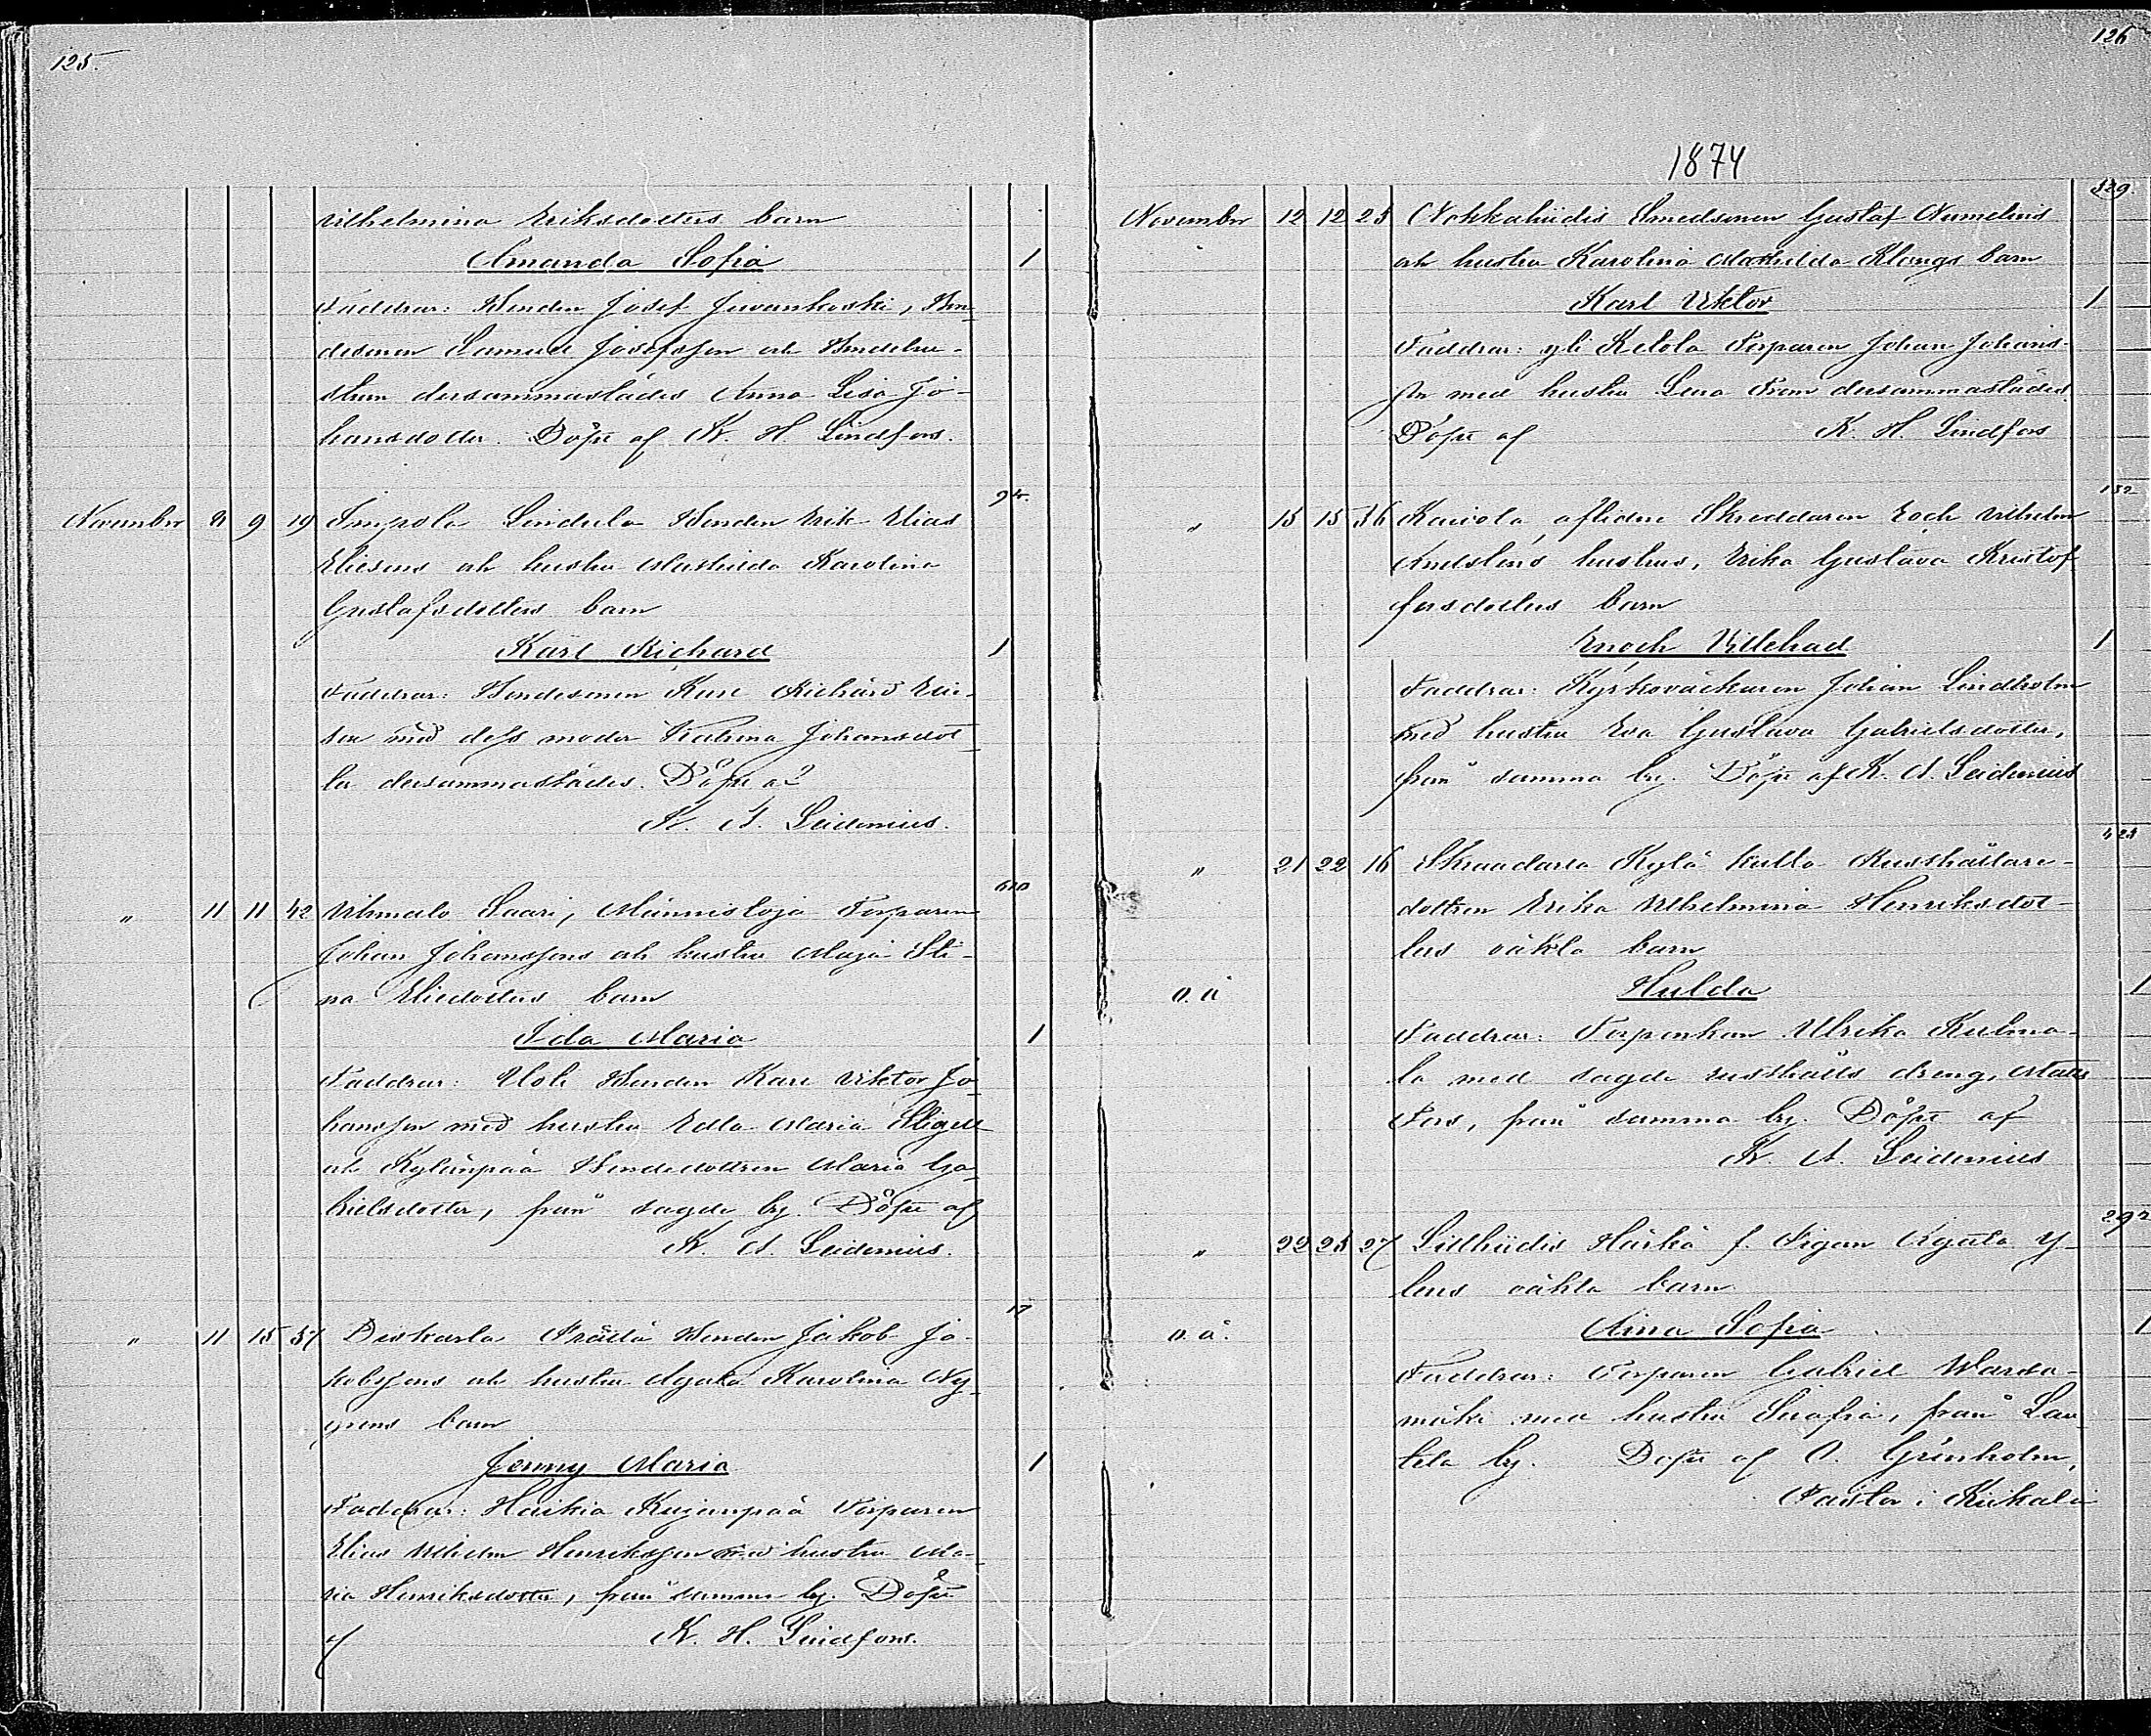 125.
Vilhelmina Eriksdotters barn
Amanda Sofia 1
Faddrar: Bonden Josef Juvankoski, Bon-
desonen Samuel Josefsson och Bondehu-
strun dersammastädes Anna Lisa Jo-
hansdotter. Döpt af K. H. Lindfors.
94.
November 8 9 19 Impola Lindula Bonden Erik Elias
Eliesens och hustru Mathilda Karolina
Gustafsdotters barn
Karl Richard 1
Faddrar: Bondesonen Karl Richard Elie-
sen med dess moder Katrina Johansdot-
ter dersammastädes. Döpt af
K. A. Leidenius.
610
" 11 11 42 Saari, Männistöja Torparen
Johan Johanssons och hustru Maja Sti-
na Eliedotters barn
Ida Maria 1
Faddrar: Uoti Bonden Karl Viktor Jo-
hansson med hustru Edla Maria
och Kylänpää Bondedottren Maria Ga-
brielsdotter, från sagde by. Döpt af
K. A. Leidenius.
17
" 11 15 37 Diskarla Prättä Bonden Jakob Ja-
kobssons och hustru Agata Karolina Ny-
grens barn
Jenny Maria 1
Faddrar: Haikia Kujanpää Torparen
Elias Vilhelm Henriksson med hustru Ma-
ria Henriksdotter, från samma by. Döpt
af K. H. Lindfors.
126
1874
329.
November 12 12 25 Nokkahiidis Smedsonen Gustaf Numelins
och hustru Karolina Mathilda Klangs barn
Karl Viktor 1
Faddrar: yli Ketola Torparen Johan Johans-
son med hustru Lena From dersammastädes.
Döpt af K. H. Lindfors
132
" 15 15 36 Raivola, aflidne Skreddaren Enoch Vilhelm
Amelins hustrus, Erika Gustava Kristof-
fersdotters barn
Enoch Villehad 1
Faddrar: Kyrkoväktaren Johan Lindholm
med hustru Eva Gustava Gabrielsdotter,
från samma by. Döpt af K. A. Leidenius
423
" 21 22 16 Skraadarla Kylä Kulta Rusthållare-
dottren Erika Vilhelmina Henriksdot-
ters oäkta barn
o. ä Hulda 1
Faddrar: Torpenkan Ulrika Kulma-
la med sagde rusthålls dreng, Matts
Fors, från samma by. Döpt af
K. A. Leidenius
292
" 22 23 27 Sillhiidis Härkä f. Pigan Agata
lens oäkta barn
o. ä. Aina Sofia 1
Faddrar: Torparen Gabriel Warsa-
mäki med hustru Serafia, från Lau-
tela by. Döpt af O. Grönholm,
Pastor i Kiikala